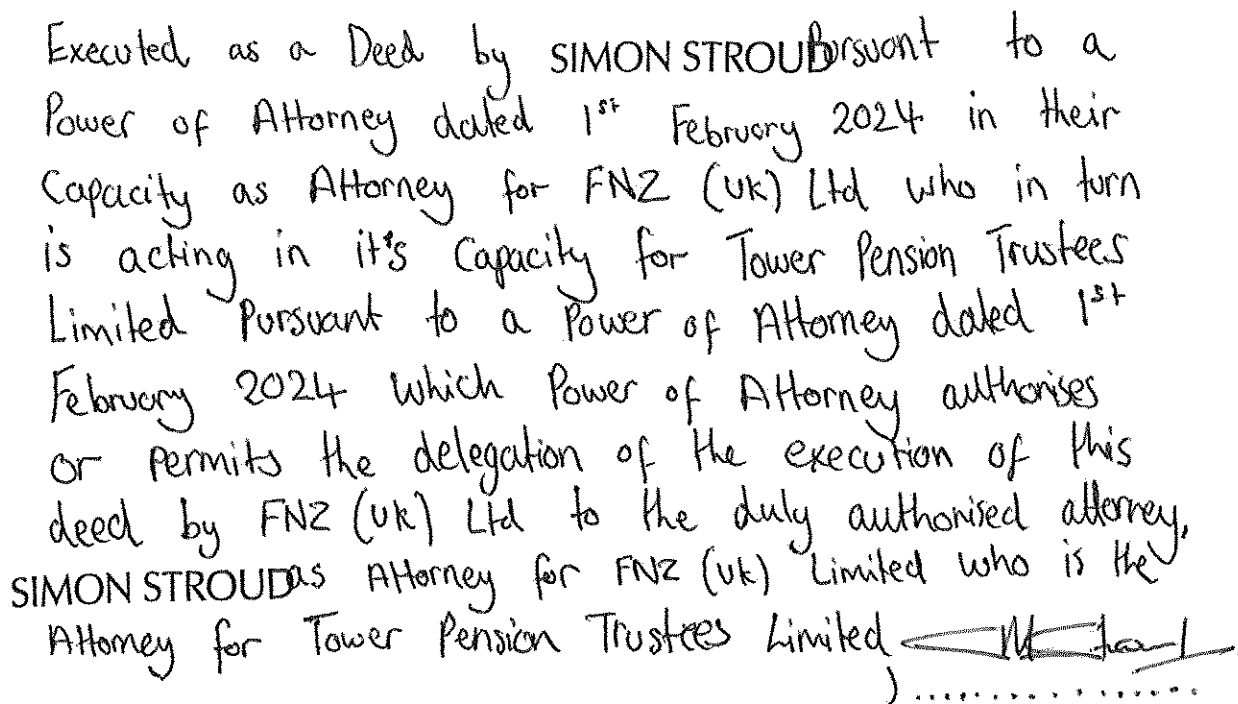 Executed as a Deed by SIMON STROUD Pursuant to a
Power of Attorney dated 1st February 2024 in their
Capacity as Attorney for FNZ (UK) Ltd who in turn
is acting in it's Capacity for Tower Pension Trustees
Limited Pursuant to a Power of Attorney dated 1st
February 2024 which Power of Attorney authorises
or permits the delegation of the execution of this
deed by FNZ (UK) Ltd to the duly authorised attorney,
SIMON STROUD as Attorney for FNZ (UK) Limited who is the
Attorney for Tower Pension Trustees Limited
)..................